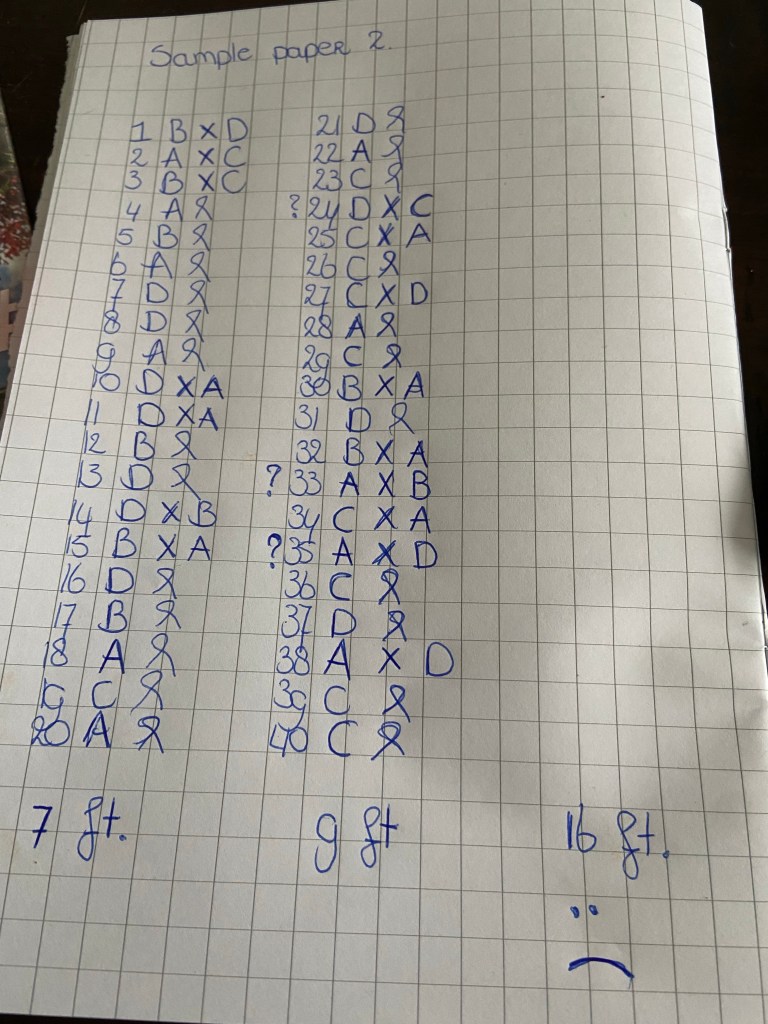 Sample paper 2.
1 B X D
2 A X C
3 B X C
4 A
5 B
6 A
7 D
8 D
9 A
10 D X A
11 D X A
12 B
13 D
14 D X B
15 B X A
16 D
17 B
18 A
19 C
20 A
7 ft.
21 D
22 A
23 C
? 24 D X C
25 C X A
26 C
27 C X D
28 A
29 C
30 B X A
31 D
32 B X A
? 33 A X B
34 C X A
? 35 A X D
36 C
37 D
38 A X D
39 C
40 C
9 ft
16 ft.